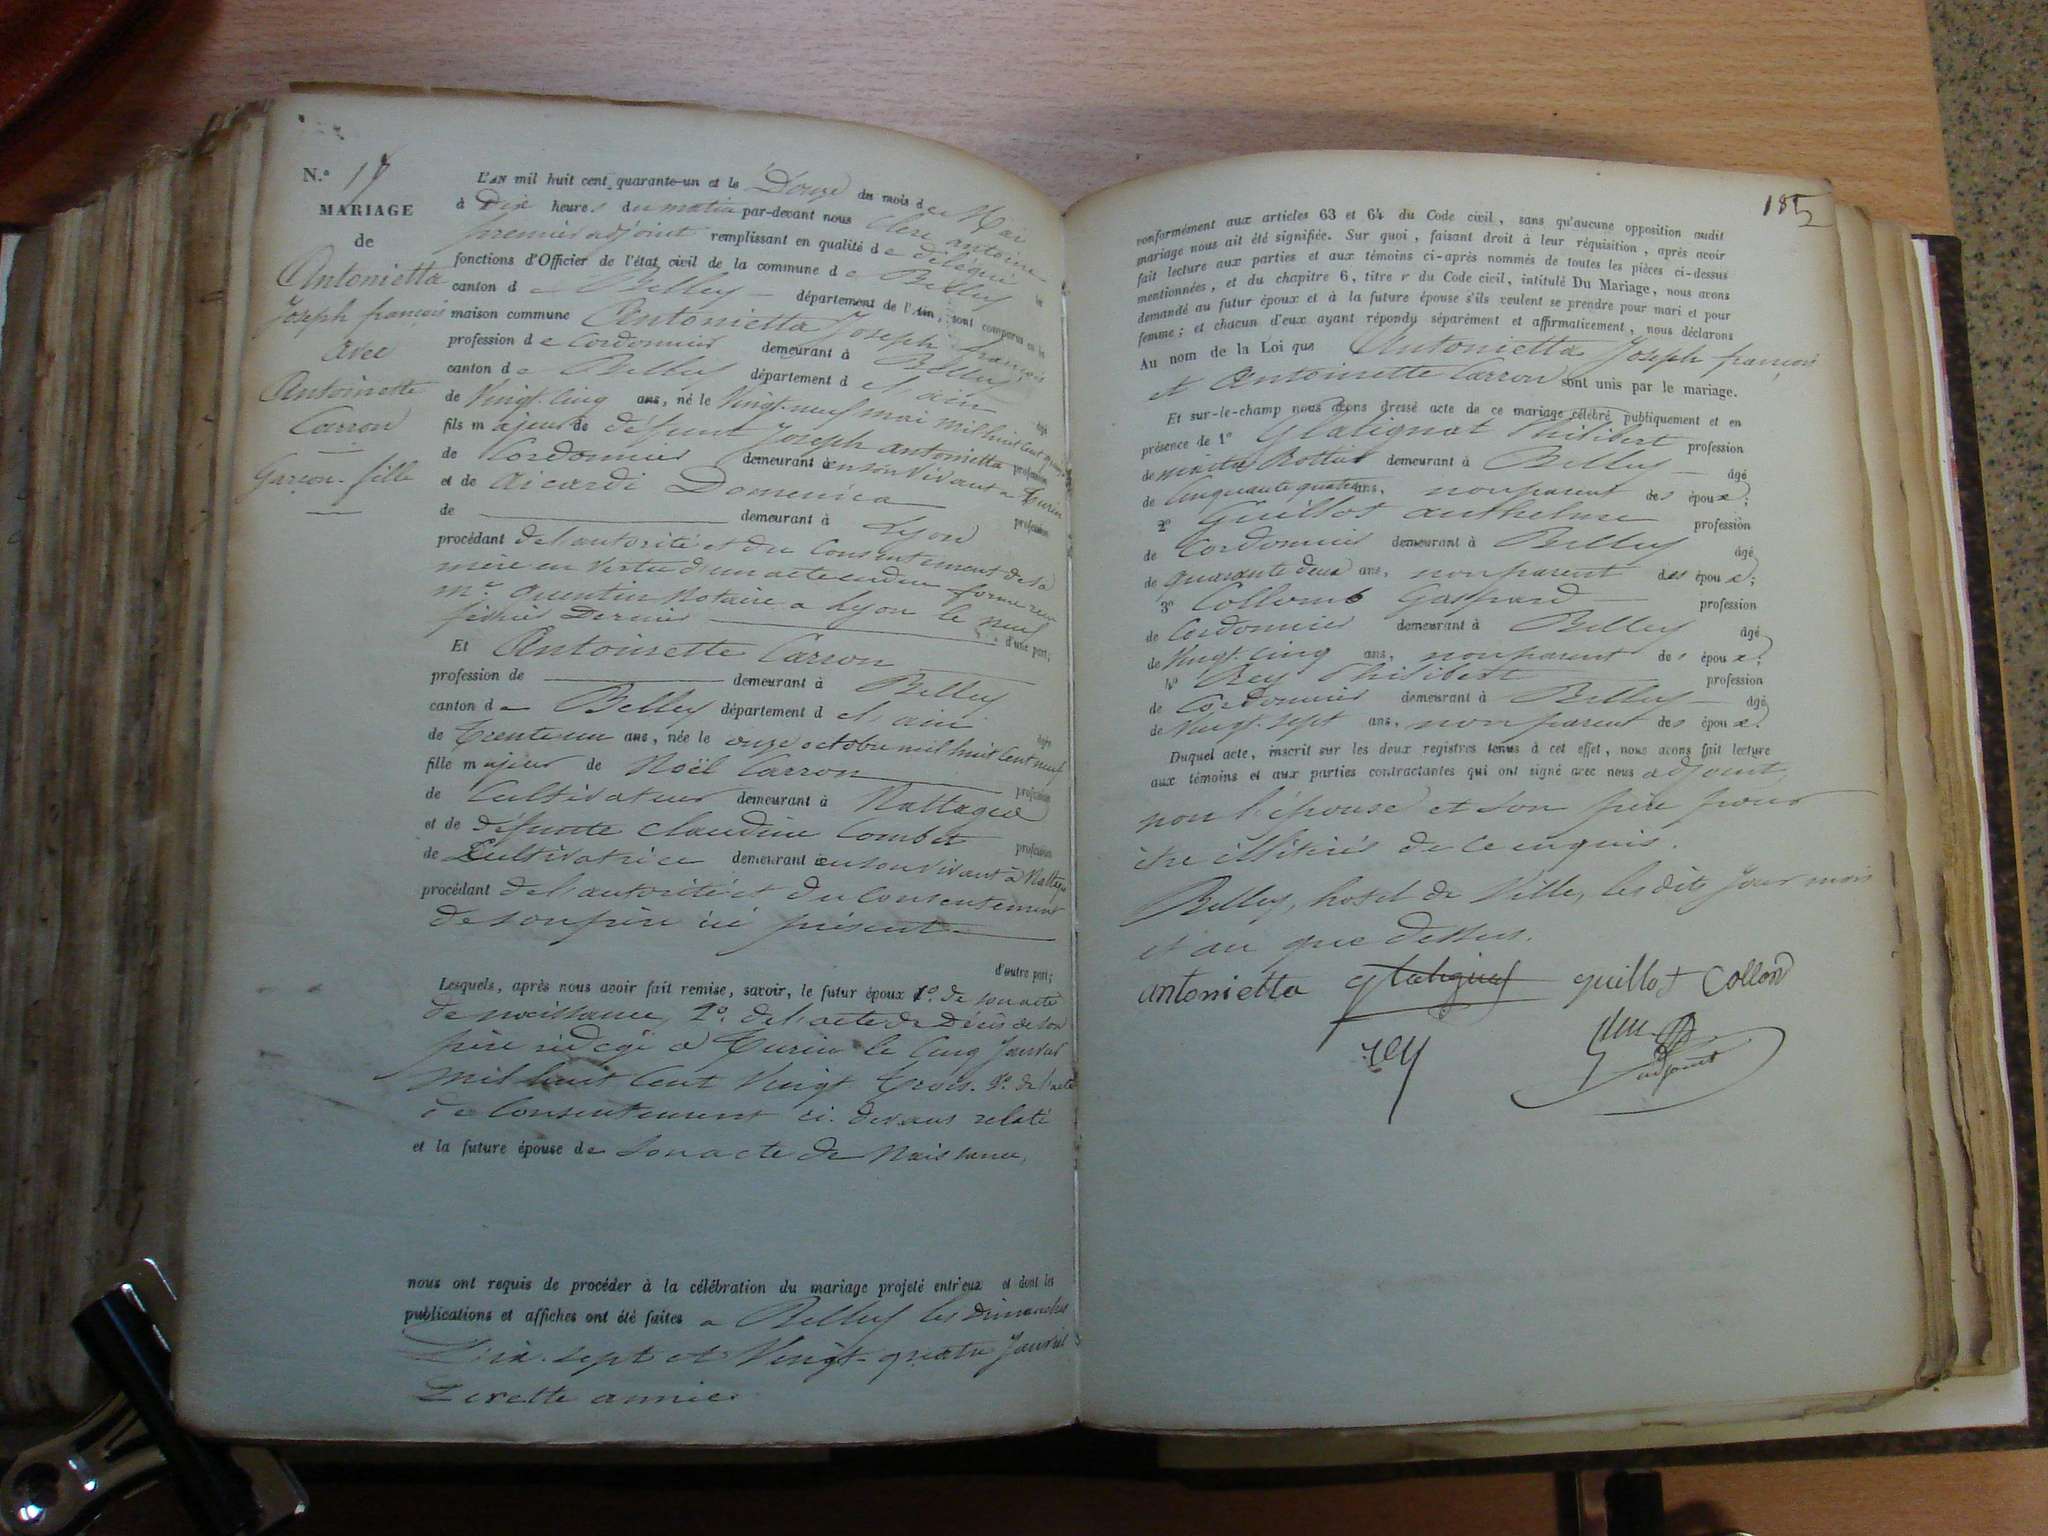 N.o 17
MARIAGE
de
Antonietta
Joseph françois
avec
Antoinette
Carron
Garçon - fille
L'AN mil huit cent quarante-un et le Douze du mois de Mai
à Dix heures du matin par-devant nous Clerc antoine
premier adjoint remplissant en qualité de délégué les
fonctions d'Officier de l'état civil de la commune de Belley
canton de Belley département de l'Ain, sont comparus en la
maison commune Antonietta Joseph françois
profession de Cordonnier demeurant à Belley
canton de Belley département de l'ain âgé
de Vingt-cinq ans, né le Vingt-neuf mai mil huit cent
fils majeur de défunt Joseph antonietta profession
de Cordonnier demeurant en son vivant a Turin
et de Aicardi Domenica profession
de demeurant à Lyon
procédant de l'autorité et du Consentement de sa
mère en vertu d'un acte en due forme reçu
Me quentin Notaire a Lyon le neuf
février Dernier d'une part;
Et Antoinette Carron
profession de demeurant à Belley
canton de Belley département de l'ain
de Trente un ans, née le onze octobre mil huit cent neuf âgée
fille majeur de Noël Carron profession
de Cultivateur demeurant à Nattages
et de défunte Claudine Combet profession
de Cultivatrice demeurant en son vivant à Nattages
procédant de l'autorité et du Consentement
de son père ici présent
d'autre part;
Lesquels, après nous avoir fait remise, savoir, le futur époux 1o. de son acte
de naissance, 2o. de l'acte de Décès de son
père rédigé a Turin le cinq Janvier
mil huit cent vingt trois. 3o. de l'acte
de Consentement ci-devant relaté
et la future épouse de son acte de Naissance,
nous ont requis de procéder à la célébration du mariage projeté entr'eux et dont les
publications et affiches ont été faites a Belley les Dimanches
Dix-sept et Vingt-quatre Janvier
De cette année
185
2
conformément aux articles 63 et 64 du Code civil, sans qu'aucune opposition audit
mariage nous ait été signifiée. Sur quoi, faisant droit à leur réquisition, après avoir
fait lecture aux parties et aux témoins ci-après nommés de toutes les pièces ci-dessus
mentionnées, et du chapitre 6, titre v du Code civil, intitulé Du Mariage, nous avons
demandé au futur époux et à la future épouse s'ils veulent se prendre pour mari et pour
femme; et chacun d'eux ayant répondu séparément et affirmativement, nous déclarons
Au nom de la Loi que Antonietta Joseph françois
et Antoinette Carron sont unis par le mariage.
Et sur-le-champ nous avons dressé acte de ce mariage célébré publiquement et en
présence de 1o Glatignat Philibert profession
de demeurant à Belley âgé
de Cinquante quatre ans, non parent des époux;
2o Guillot anthelme profession
de Cordonnier demeurant à Belley âgé
de quarante deux ans, non parent des époux;
3o Collomb Gaspard profession
de Cordonnier demeurant à Belley âgé
de Vingt-cinq ans, non parent des époux;
4o Rey Philibert profession
de Cordonnier demeurant à Belley âgé
de Vingt-sept ans, non parent des époux.
Duquel acte, inscrit sur les deux registres tenus à cet effet, nous avons fait lecture
aux témoins et aux parties contractantes qui ont signé avec nous adjoint,
non l'épouse et son père pour
être illitirés de ce enquis.
Belley, hotel de Ville, les dits Jour mois
et an que dessus.
antonietta Glatignat guillot Collomb
rey
adjoint